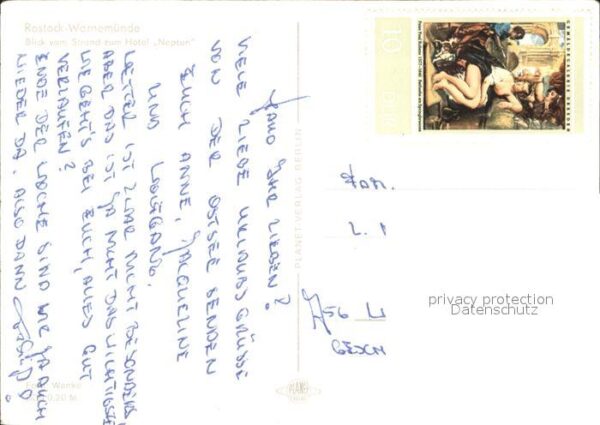 Rostock-Warnemünde
Blick vom Strand zum Hotel „Neptun"
HALLO IHR LIEBEN!
VIELE LIEBE URLAUBSGRÜSSE
VON DER OSTSEE SENDEN
EUCH ANNE, JACQUELINE
UND WOLFGANG.
WETTER IST ZWAR NICHT BESONDERS
ABER DAS IST JA NICHT DAS WICHTIGSTE
WIE GEHT'S BEI EUCH, ALLES GUT
VERLAUFEN?
ENDE DER WOCHE SIND WIR JA AUCH
WIEDER DA. ALSO DANN
Foto: Wenke
PLANET-VERLAG BERLIN
PLANET
10
DDR
FAM.
privacy protection
Datenschutz